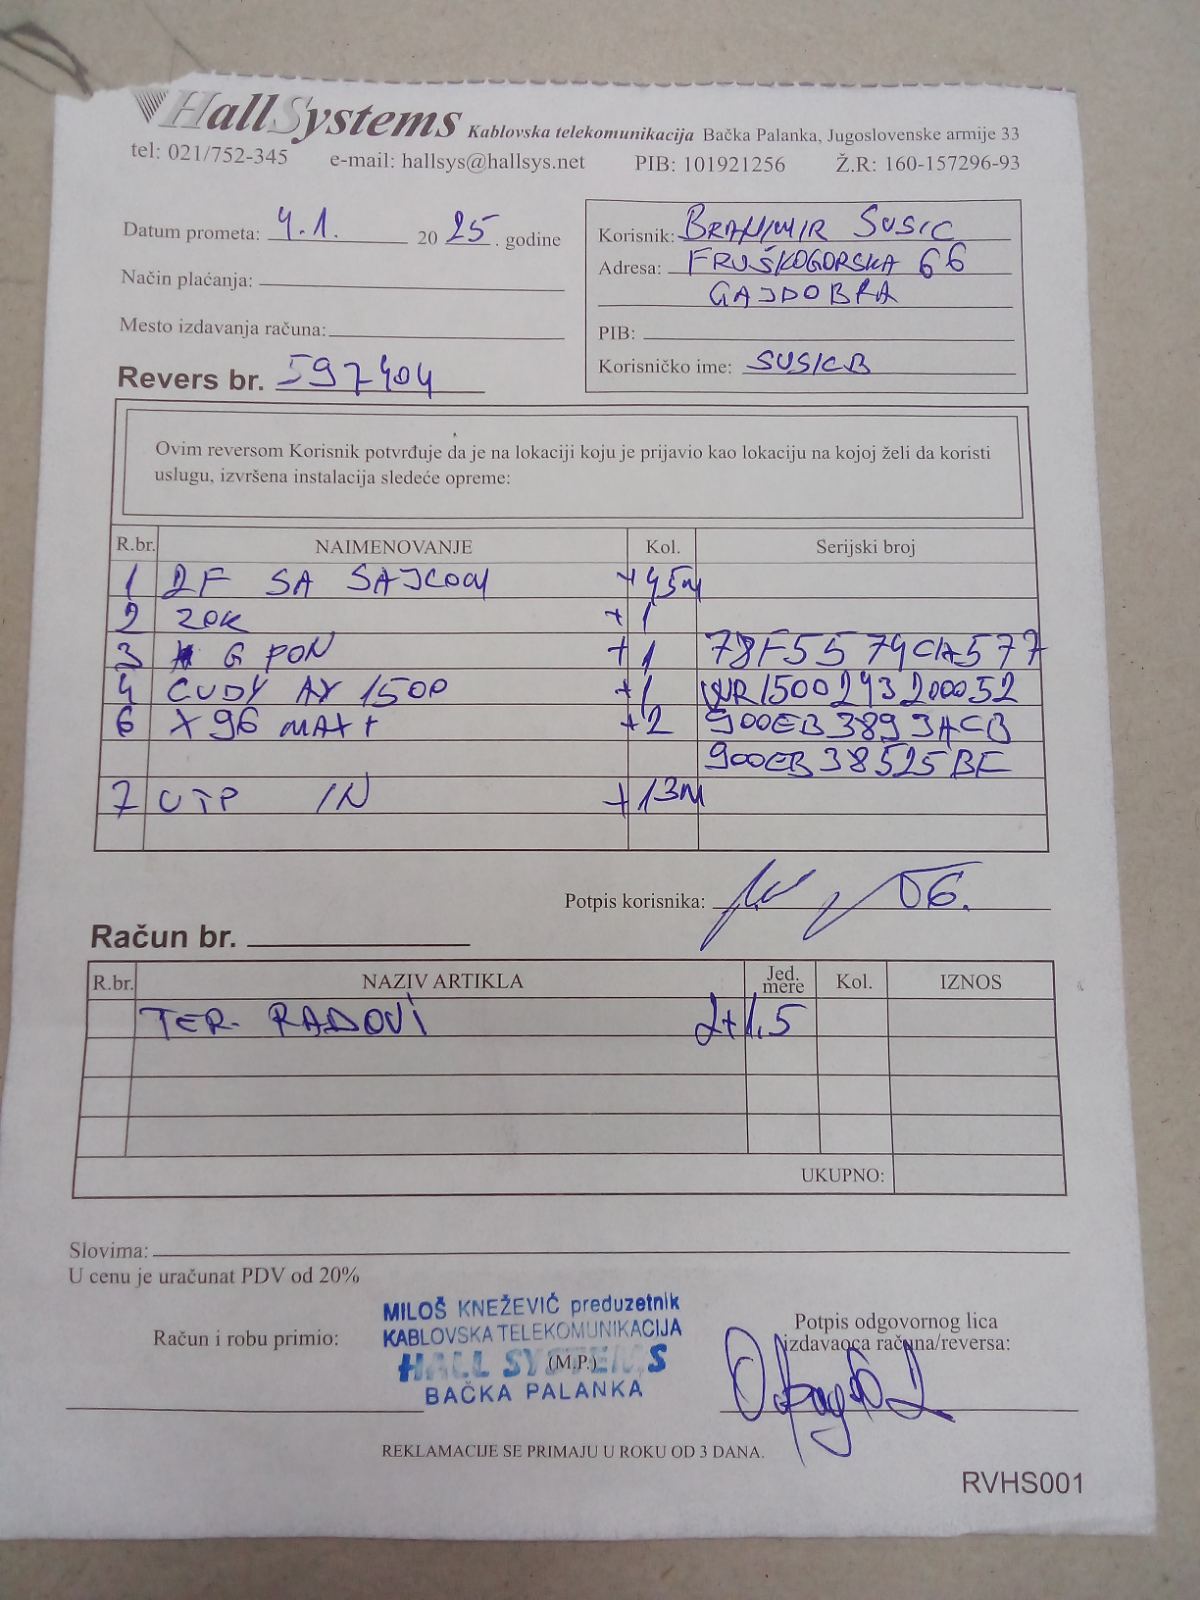 HallSystems Kablovska telekomunikacija Bačka Palanka, Jugoslovenske armije 33
tel: 021/752-345 e-mail: hallsys@hallsys.net PIB: 101921256 Ž.R: 160-157296-93
Datum prometa: 4.1. 2025. godine
Način plaćanja:
Mesto izdavanja računa:
Revers br. 597404
Korisnik: BRANIMIR SUSIC
Adresa: FRUŠKOGORSKA 66
GAJDOBRA
PIB:
Korisničko ime: SUSICB
Ovim reversom Korisnik potvrđuje da je na lokaciji koju je prijavio kao lokaciju na kojoj želi da koristi
uslugu, izvršena instalacija sledeće opreme:
R.br. NAIMENOVANJE Kol. Serijski broj
1 2F SA SAJLOM +45M
2 ZOK +1
3 G PON +1 78F5574CA577
4 CUDY AX 1500 +1 WR1500243200052
6 X96 MAX+ +2 900EB3893ACB
900EB38525BE
7 UTP IN +13M
Potpis korisnika:
Račun br.
R.br. NAZIV ARTIKLA Jed. mere Kol. IZNOS
TER. RADOVI 2+1,5
UKUPNO:
Slovima:
U cenu je uračunat PDV od 20%
Račun i robu primio:
MILOŠ KNEŽEVIĆ preduzetnik
KABLOVSKA TELEKOMUNIKACIJA
HALL SYSTEMS
(M.P.)
BAČKA PALANKA
Potpis odgovornog lica
izdavaoca računa/reversa:
REKLAMACIJE SE PRIMAJU U ROKU OD 3 DANA.
RVHS001